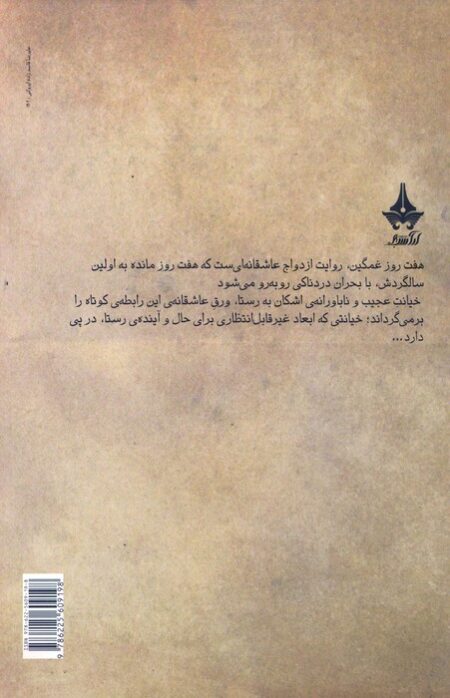 هفت روز غمگین، روایت ازدواج عاشقانه‌ای‌ست که هفت روز مانده به اولین
سالگردش، با بحران دردناکی روبه‌رو می‌شود
خیانتِ عجیب و ناباورانه‌ی اشکان به رستا، ورق عاشقانه‌ی این رابطه‌ی کوتاه را
برمی‌گرداند؛ خیانتی که ابعاد غیرقابل‌انتظاری برای حال و آینده‌ی رستا، در پی
دارد...
ISBN 978-622-5609-19-8
9 786225 609198